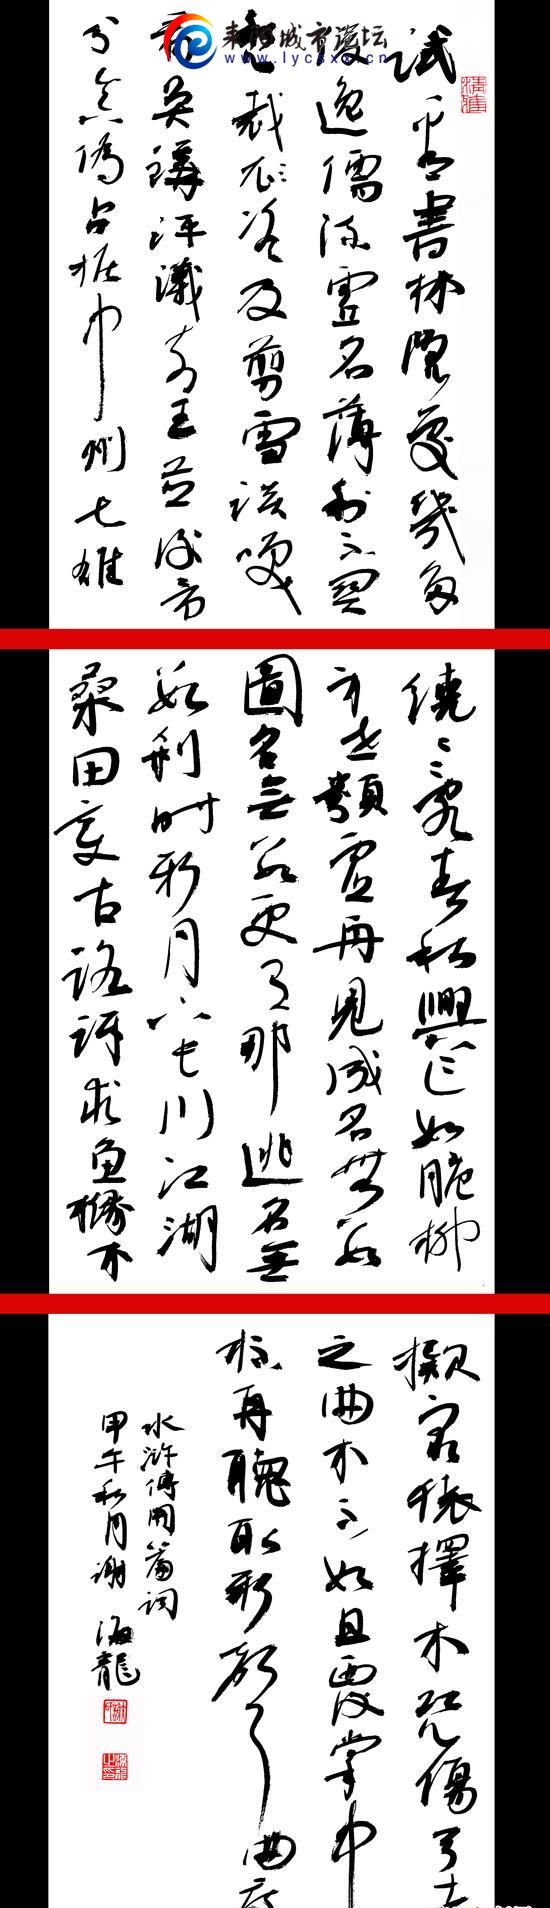 耒阳城市论坛
試看書林隱處幾多
俊逸儒流虛名薄利不関
愁裁冰及剪雪談咲
看吳鉤評議前王並後帝
分真偽占據中州七雄
繞〻亂春秋興亡如脆柳
身世類虛舟見成名無數
圖名無數更有那逃名無
數刹時新月下長川江湖
桑田变古路訝求魚緣木
擬窮猿擇木恐傷弓遠
之曲木不如且覆掌中
杯再聽取新聲曲度
水滸傳開篇詞
甲午秋月謝海龍